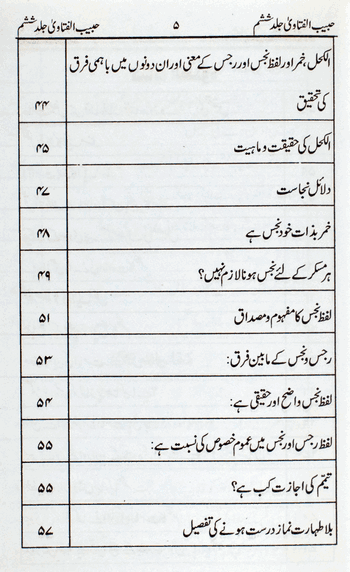 حبیب الفتاویٰ جلد ششم ۵ حبیب الفتاویٰ جلد ششم
الکحل، خمر اور لفظ نجس اور رجس کے معنی اور ان دونوں میں باہمی فرق
کی تحقیق ۴۴
الکحل کی حقیقت و ماہیت ۴۵
دلائل نجاست ۴۷
خمر بذات خود نجس ہے ۴۸
ہر مسکر کے لئے نجس ہونا لازم نہیں؟ ۴۹
لفظ نجس کا مفہوم و مصداق ۵۱
رجس و نجس کے مابین فرق: ۵۳
لفظ نجس واضح اور حقیقی ہے: ۵۴
لفظ رجس اور نجس میں عموم خصوص کی نسبت ہے: ۵۵
تیمّم کی اجازت کب ہے؟ ۵۵
بلا طہارت نماز درست ہونے کی تفصیل ۵۷